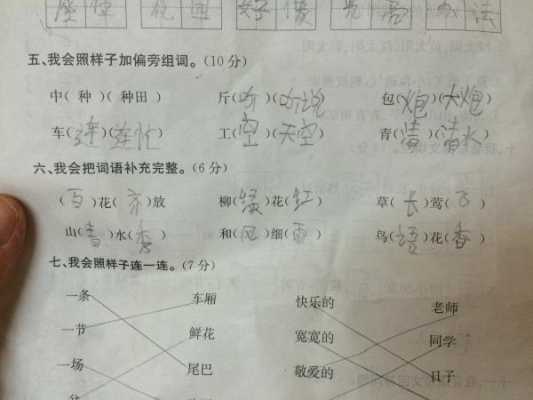 五、我会照样子加偏旁组词。(10分)
中( 种 )( 种田 ) 斤(听)(听说) 包(炮)(大炮)
车(连)(连忙) 工(空)(天空) 青(清)(清水)
六、我会把词语补充完整。(6分)
(百)花(齐)放 柳(绿)花(红) 草(长)莺(飞)
山(青)水(秀) 和(风)细(雨) 鸟(语)花(香)
七、我会照样子连一连。(7分)
一条 车厢 快乐的 老师
一节 鲜花 宽宽的 同学
一场 尾巴 敬爱的 日子